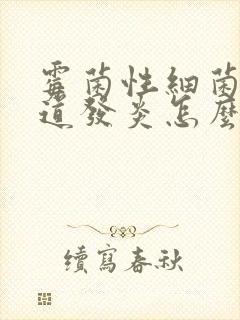 霉菌性細菌
道發炎怎麼
續寫春秋